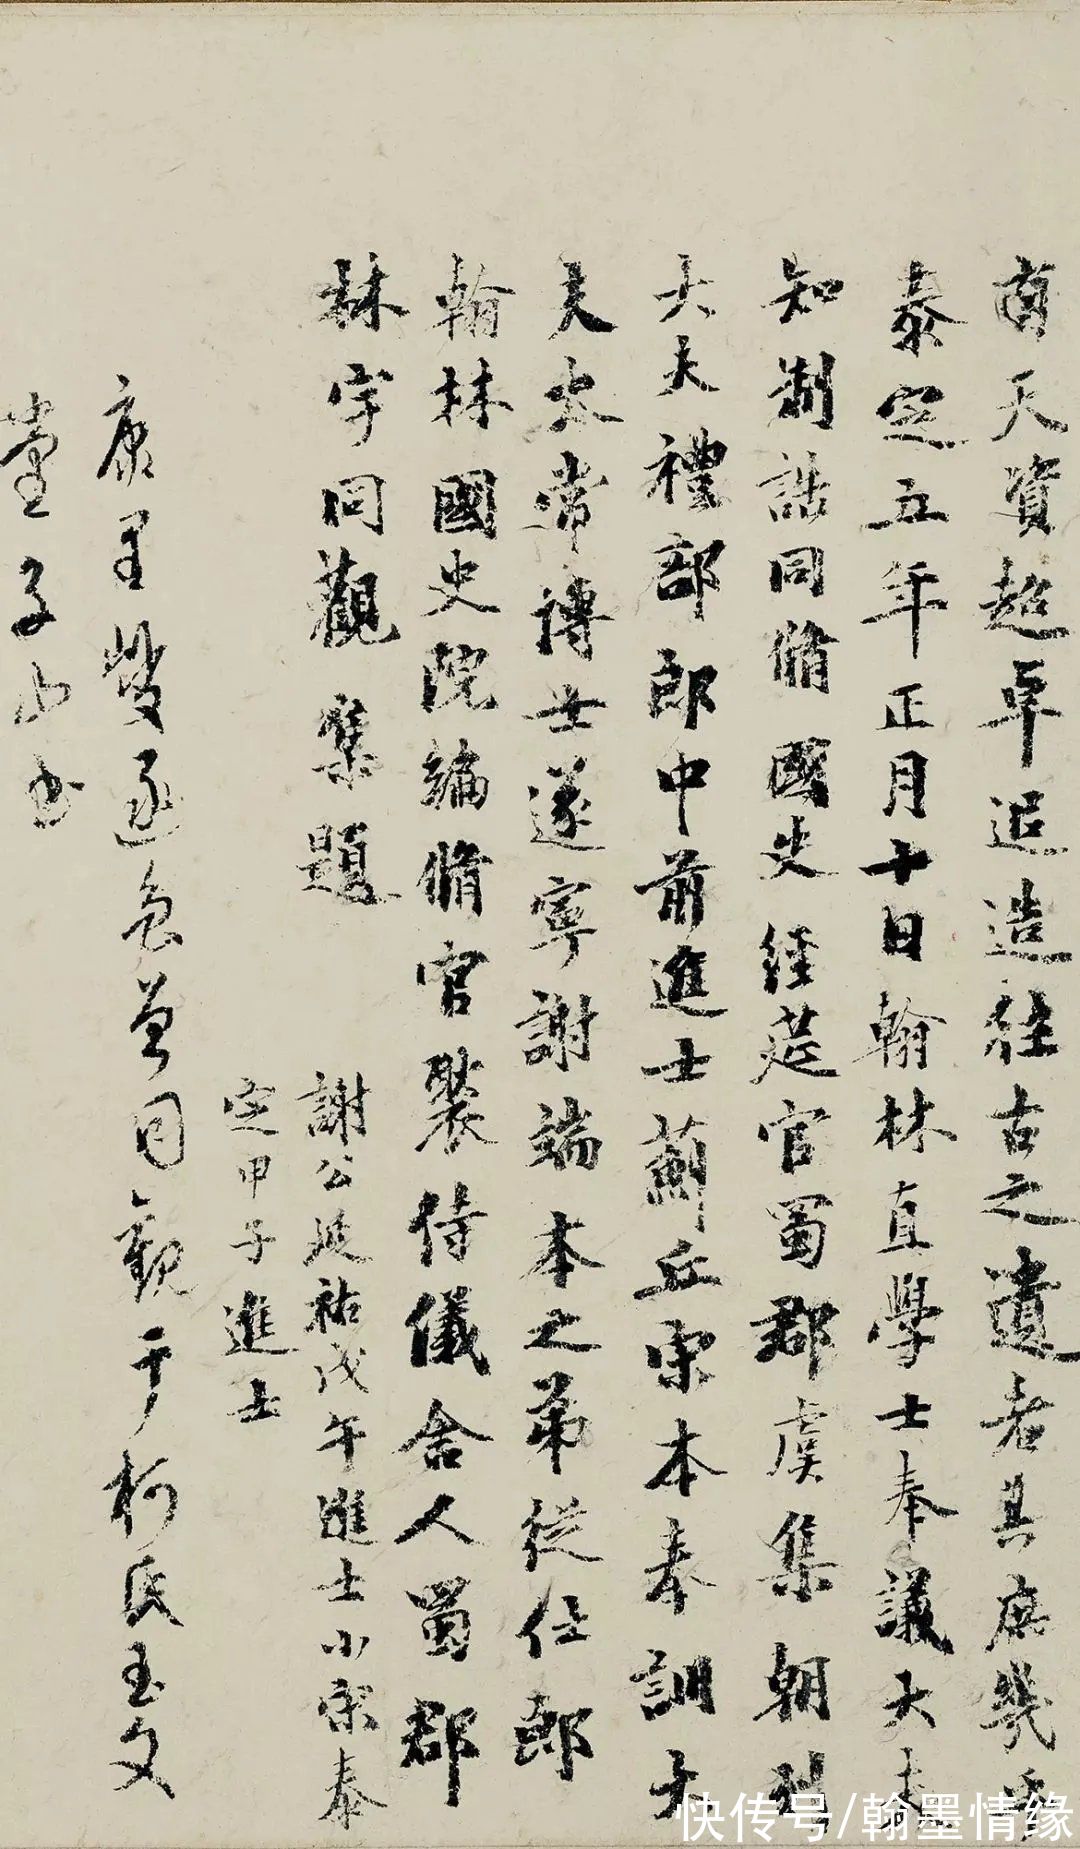 有天資超卓追造往古之遺者其庶幾乎
泰定五年正月十日翰林直學士奉議大夫
知制誥同脩國史經莚官蜀郡虞集朝列
大夫禮部郎中前進士薊丘宋本奉訓大
夫太常博士遂寧謝端本之弟從仕郎
翰林國史院編脩官褧侍儀舍人蜀郡
林宇同觀集題
謝公延祐戊午進士小宋泰
定甲子進士
康里巎遂魯曾同觀于柯氏玉文
堂子山書
快传号/翰墨情缘